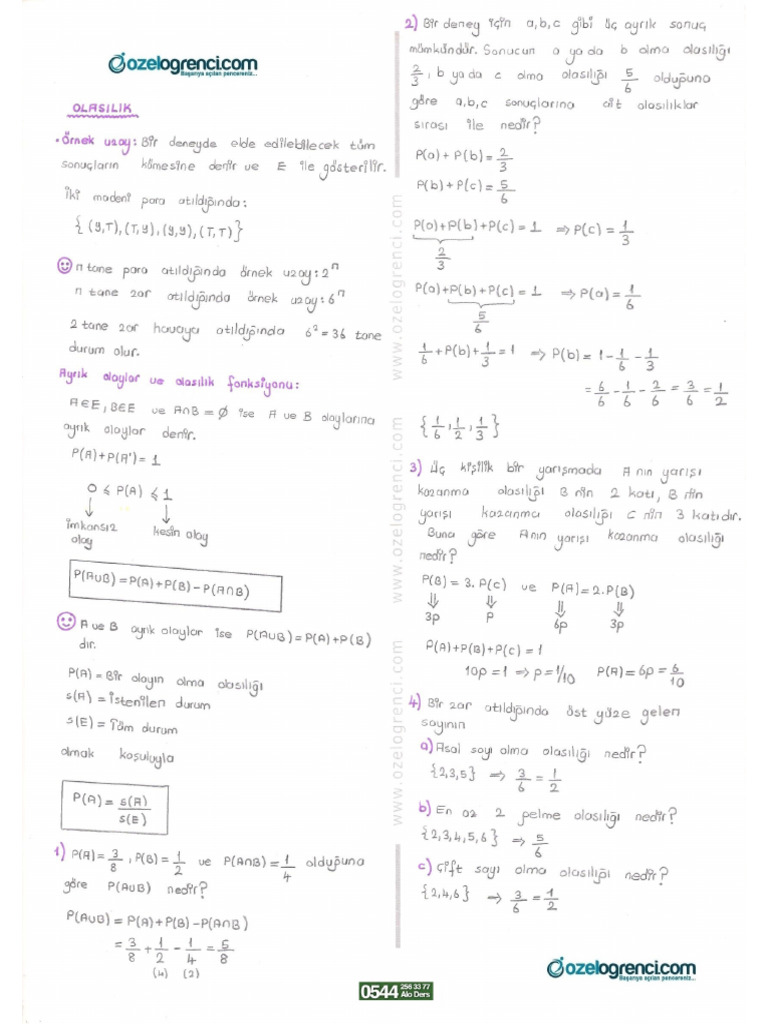 özelogrenci.com
Başarıya açılan pencereniz...
OLASILIK
• Örnek uzay: Bir deneyde elde edilebilecek tüm
sonuçların kümesine denir ve E ile gösterilir.
İki madeni para atıldığında:
{(Y,T),(T,Y),(Y,Y),(T,T)}
n tane para atıldığında örnek uzay: 2ⁿ
n tane zar atıldığında örnek uzay: 6ⁿ
2 tane zar havaya atıldığında 6² = 36 tane
durum olur.
Ayrık olaylar ve olasılık fonksiyonu:
A∈E, B∈E ve A∩B = ∅ ise A ve B olaylarına
ayrık olaylar denir.
P(A)+P(A')=1
0 ≤ P(A) ≤ 1
imkansız olay
kesin olay
P(A∪B)=P(A)+P(B)-P(A∩B)
A ve B ayrık olaylar ise P(A∪B)=P(A)+P(B)
dir.
P(A)=Bir olayın olma olasılığı
s(A)=İstenilen durum
s(E)=Tüm durum
olmak koşuluyla
P(A)= s(A)/s(E)
1) P(A)=3/8, P(B)=1/2 ve P(A∩B)=1/4 olduğuna
göre P(A∪B) nedir?
P(A∪B) = P(A)+P(B)-P(A∩B)
= 3/8 + 1/2 - 1/4 = 5/8
(4) (2)
2) Bir deney için a,b,c gibi üç ayrık sonuç
mümkündür. Sonucun a ya da b olma olasılığı
2/3, b ya da c olma olasılığı 5/6 olduğuna
göre a,b,c sonuçlarına ait olasılıklar
sırası ile nedir?
P(a)+P(b)=2/3
P(b)+P(c)=5/6
P(a)+P(b)+P(c)=1 ⇒ P(c)=1/3
2/3
P(a)+P(b)+P(c)=1 ⇒ P(a)=1/6
5/6
1/6+P(b)+1/3=1 ⇒ P(b)=1-1/6-1/3
=6/6-1/6-2/6=3/6=1/2
{1/6,1/2,1/3}
3) Üç kişilik bir yarışmada A nın yarışı
kazanma olasılığı B nin 2 katı, B nin
yarışı kazanma olasılığı C nin 3 katıdır.
Buna göre Anın yarışı kazanma olasılığı
nedir?
P(B)=3.P(C) ve P(A)=2.P(B)
⇓ ⇓ ⇓ ⇓
3p p 6p 3p
P(A)+P(B)+P(C)=1
10p=1 ⇒ p=1/10 P(A)=6p=6/10
4) Bir zar atıldığında üst yüze gelen
sayının
a) Asal sayı olma olasılığı nedir?
{2,3,5} ⇒ 3/6=1/2
b) En az 2 gelme olasılığı nedir?
{2,3,4,5,6} ⇒ 5/6
c) Çift sayı olma olasılığı nedir?
{2,4,6} ⇒ 3/6=1/2
www.ozelogrenci.com
www.ozelogrenci.com
www.ozelogrenci.com
0544 256 33 77
Alo Ders
özelogrenci.com
Başarıya açılan pencereniz...